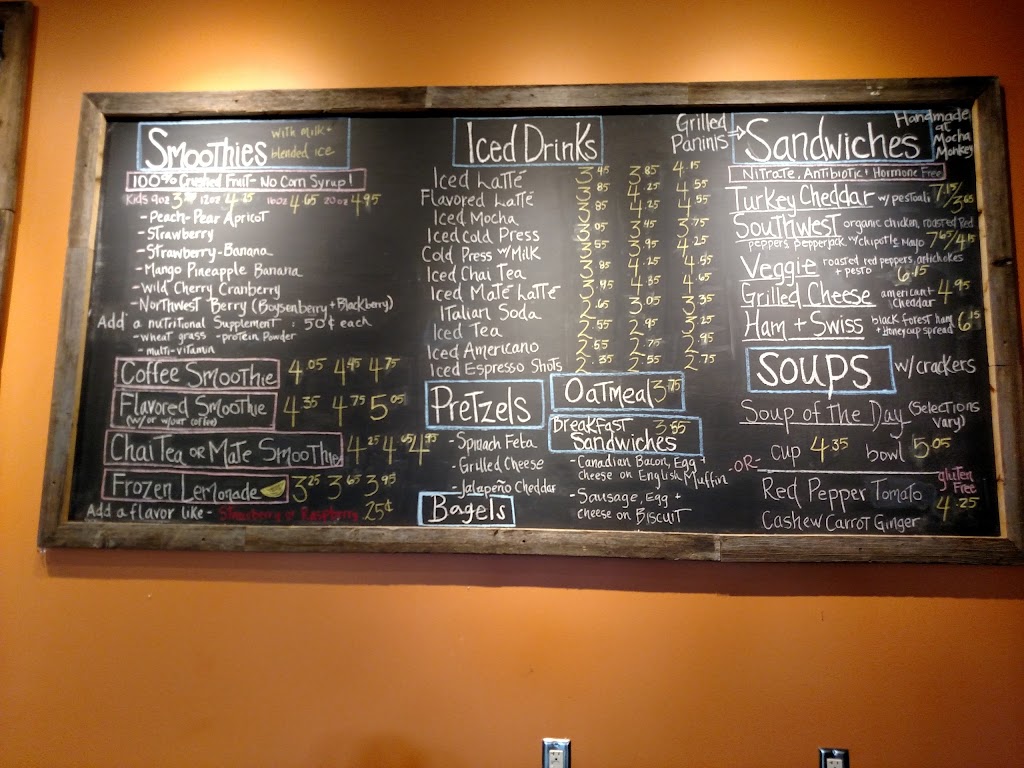 Smoothies
with milk + blended ice
100% Crushed Fruit - No Corn Syrup!
Kids 9oz 12oz 4.25 16oz 4.65 20oz 4.95
- Peach-Pear Apricot
- Strawberry
- Strawberry-Banana
- Mango Pineapple Banana
- Wild Cherry Cranberry
- Northwest Berry (Boysenberry + Blackberry)
Add a nutritional Supplement : 50¢ each
- wheat grass - protein Powder
- multi-vitamin
Coffee Smoothie 4.05 4.45 4.75
Flavored Smoothie 4.35 4.75 5.05
(w/ or w/out coffee)
Chai Tea or Mate Smoothies 4.25 4.65 4.95
Frozen Lemonade 3.25 3.65 3.95
Add a flavor like - Strawberry or Raspberry .25¢
Iced Drinks
Iced Latté 3.45 3.85 4.15
Flavored Latté 3.85 4.25 4.55
Iced Mocha 3.85 4.25 4.55
Iced Cold Press 3.05 3.45 3.75
Cold Press w/ Milk 3.55 3.95 4.25
Iced Chai Tea 3.85 4.25 4.55
Iced Maté Latté 3.95 4.35 4.65
Italian Soda 2.65 3.05 3.35
Iced Tea 2.55 2.95 3.25
Iced Americano 2.55 2.75 2.95
Iced Espresso Shots 2.55 2.75
Pretzels
- Spinach Feta
- Grilled Cheese
- Jalapeño Cheddar
Bagels
Oatmeal 3.75
Breakfast Sandwiches 3.55
- Canadian Bacon, Egg +
cheese on English Muffin
- Sausage, Egg +
cheese on Biscuit
Grilled Paninis
Sandwiches
Handmade at Mocha Monkey
Nitrate, Antibiotic + Hormone Free
Turkey Cheddar w/ pestoali 7.15/3.65
Southwest organic chicken, roasted Red
peppers, pepperjack w/ chipotle Mayo 7.65/4.15
Veggie roasted red peppers, artichokes
+ pesto 6.15
Grilled Cheese american + cheddar 4.95
Ham + Swiss black forest ham + Honeycup spread 6.15
Soups w/ crackers
Soup of the Day (Selections Vary)
cup 4.35 bowl 5.05
-OR-
Red Pepper Tomato
gluten Free
4.25
Cashew Carrot Ginger